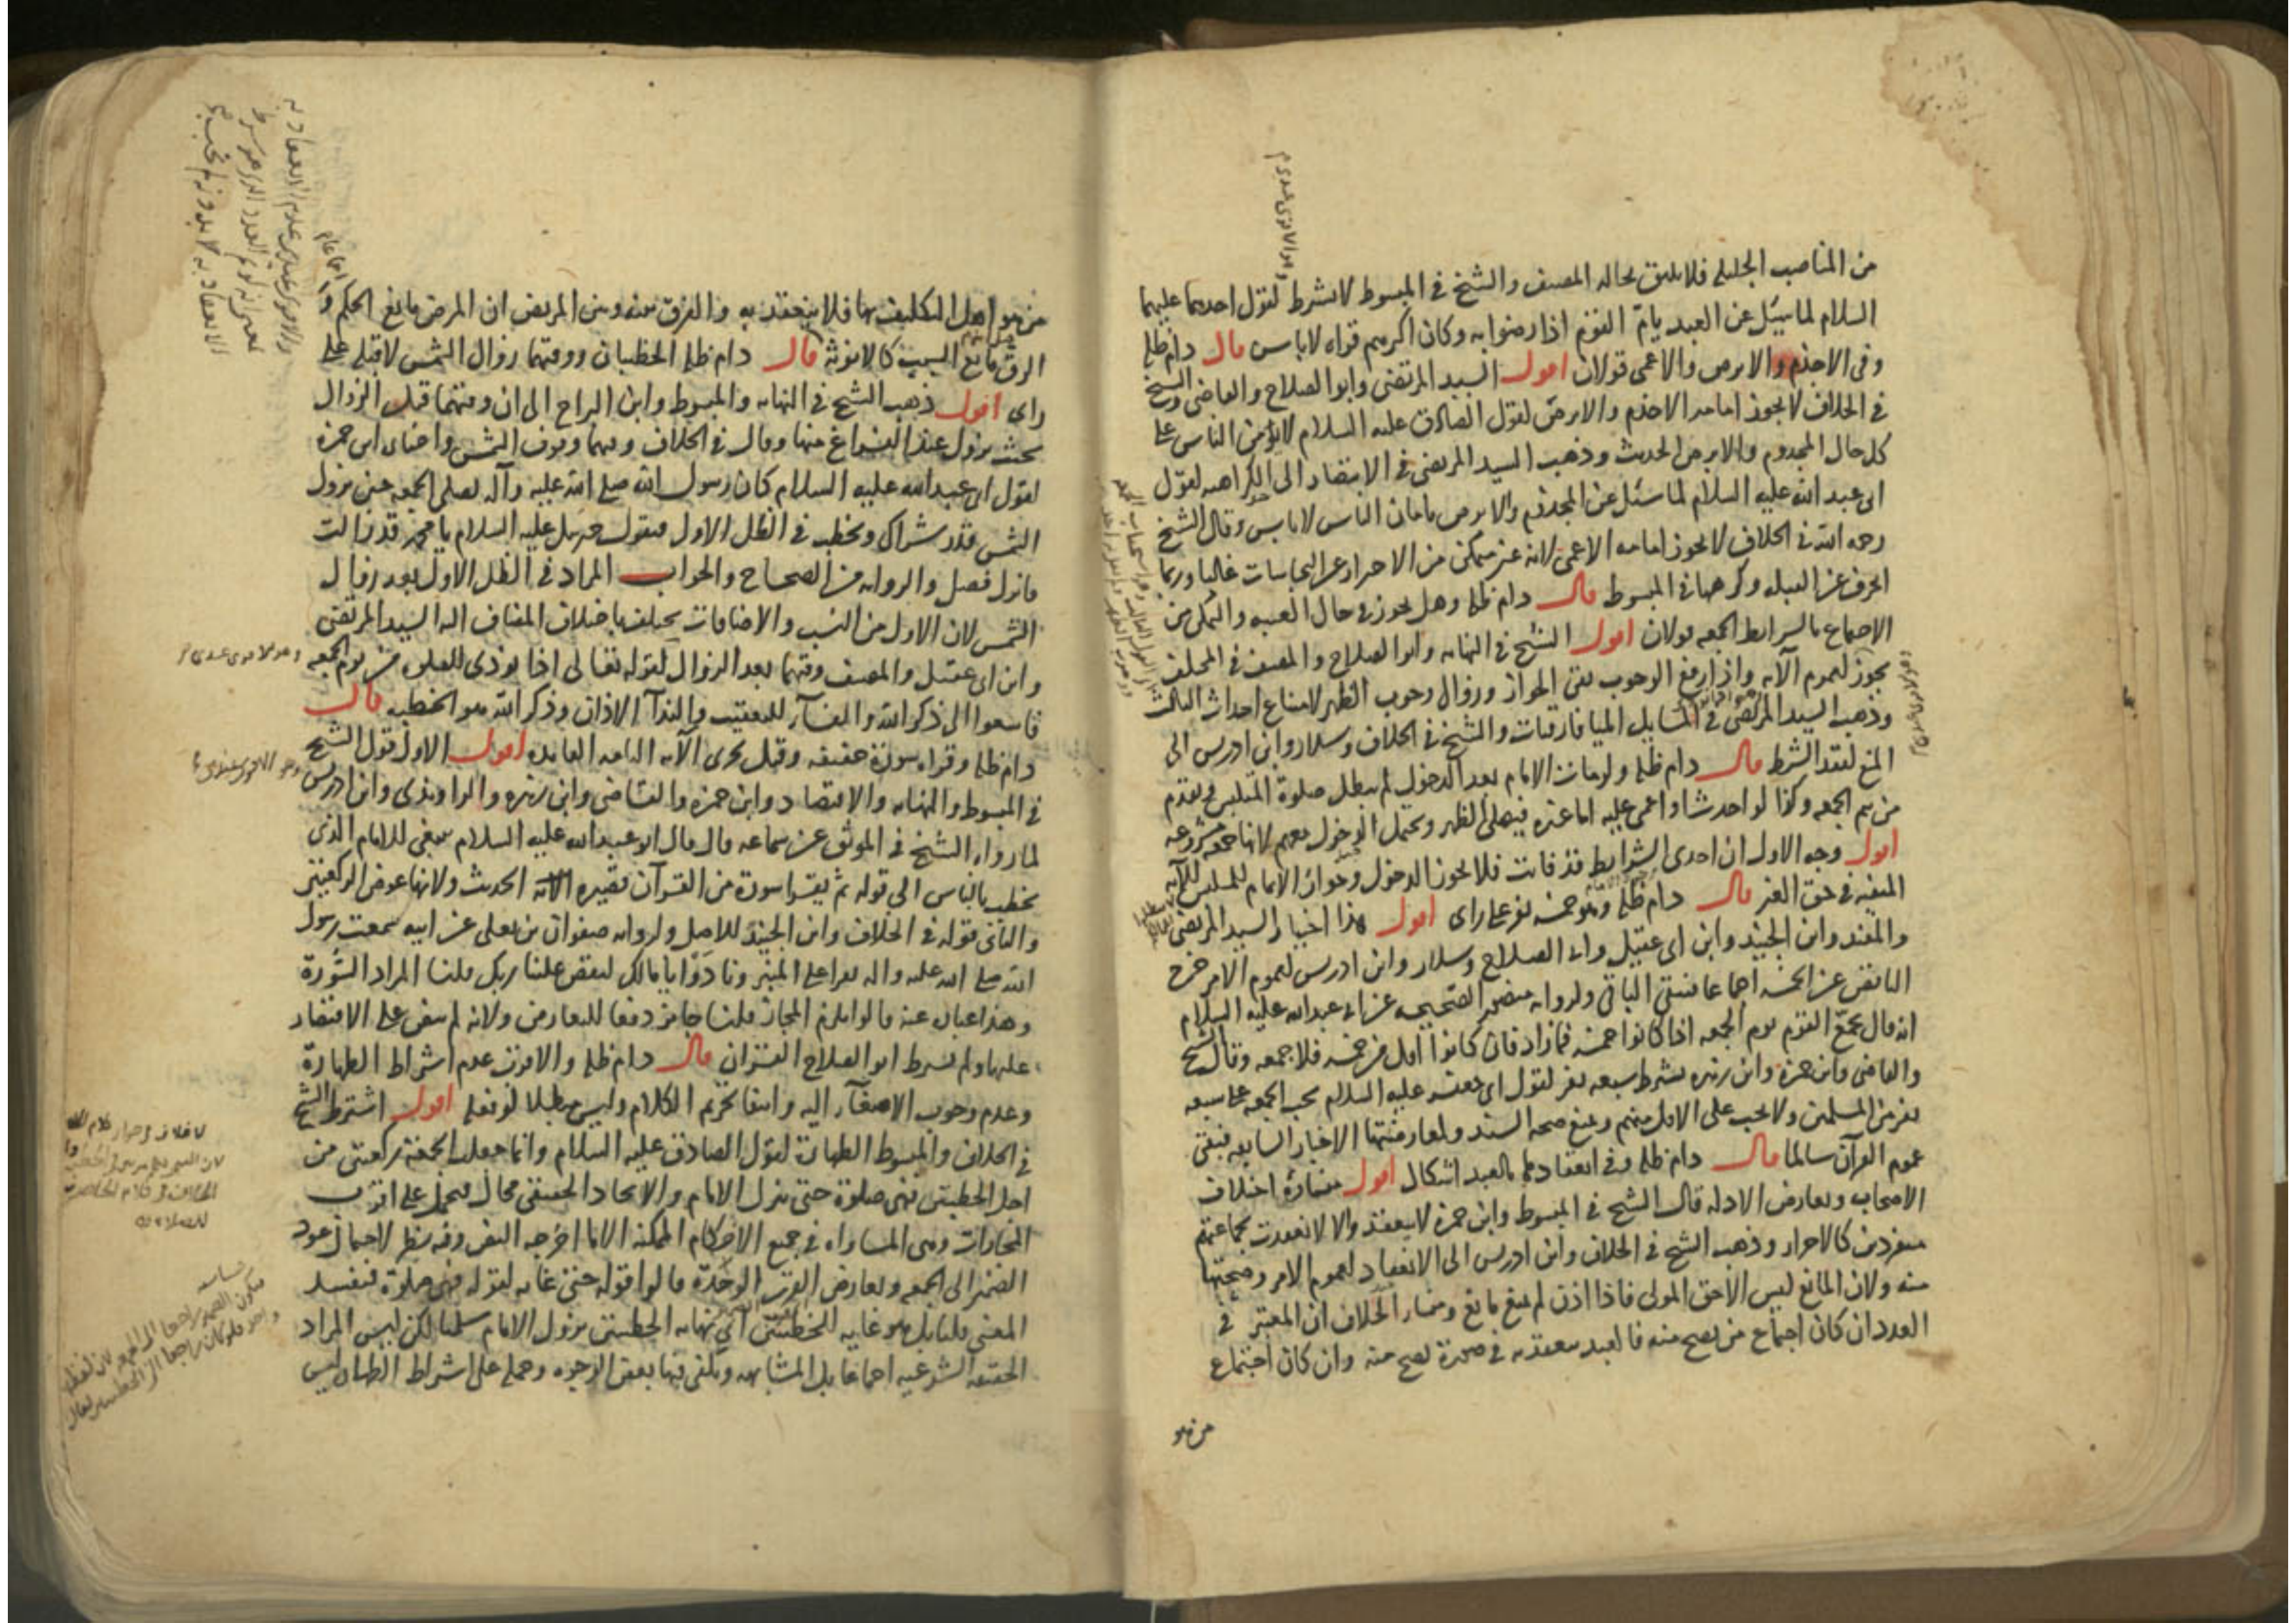 من المناصب الجليله فلا يليق بحاله المصنف والشيخ في المبسوط لا يشترط لقول احدهما عليهما
السلام لما سئل عن العبد يامّ القوم اذا رضوا به وكان اكرمهم قراه لا باس قال دام ظله
وفي الاجذم والابرص والاعمى قولان اقول السيد المرتضى وابو الصلاح والقاضي والشيخ
في الخلاف لا يجوز امامه الاجذم والابرص لقول الصادق عليه السلام لا يؤمن الناس على
كل حال المجذوم والابرص الحديث وذهب السيد المرتضى في الانتصار الى الكراهه لقول
ابي عبد الله عليه السلام لما سئل عن المجذوم والابرص يامان الناس لا باس وقال الشيخ
رحمه الله في الخلاف لا يجوز امامه الاعمى لانه غير متمكن من الاحتراز عن النجاسات غالبا وربما
انحرف عن القبله وكرهها في المبسوط قال دام ظله وهل يجوز في حال الغيبه والتمكن من
الاجتماع بالشرايط الجمعه قولان اقول الشيخ في النهايه وابو الصلاح والمصنف في المختلف
يجوز لعموم الآيه واذا ارتفع الوجوب بقي الجواز وزوال وجوب الظهر لامتناع احداث الثالث
وذهب السيد المرتضى في المسايل الميافارقيات والشيخ في الخلاف وسلار وابن ادريس الى
المنع لفقد الشرط قال دام ظله ولو مات الامام بعد الدخول لم يبطل صلوة المتلبس ويقدم
من يتم الجمعه وكذا لو احدث او اغمي عليه اما غيره فيصلي الظهر ويحتمل الدخول معهم لانها جمعه مشروعه
اقول وجه الاول ان احدى الشرايط قد فاتت فلا يجوز الدخول وجواز الاتمام للمتلبس للآيه
المنفيه في حق الغير قال دام ظله وهو خمسه نفر على راى اقول هذا اختيار السيد المرتضى
والمفيد وابن الجنيد وابن ابي عقيل وابي الصلاح وسلار وابن ادريس لعموم الامر خرج
الناقص عن الخمسه اجماعا فبقي الباقي ولروايه منصور الصحيحه عن ابي عبد الله عليه السلام
انه قال يجمع القوم يوم الجمعه اذا كانوا خمسه فما زاد فان كانوا اقل من خمسه فلا جمعه وقال الشيخ
والقاضي وابن حمزه وابن زهره يشترط سبعه نفر لقول ابي جعفر عليه السلام يجب الجمعه على سبعه
نفر من المسلمين ولا يجب على الاقل منهم ويمنع صحه السند ولمعارضتها الاخبار السابقه فبقي
عموم القرآن سالما قال دام ظله وفي انعقادها بالعبد اشكال اقول منشاؤه اختلاف
الاصحاب وتعارض الادله قال الشيخ في المبسوط وابن حمزه لا ينعقد والا لانعقدت بجماعتهم
منفردين كالاحرار وذهب الشيخ في الخلاف وابن ادريس الى الانعقاد لعموم الامر وصحتها
منه ولان المانع ليس الا حق المولى فاذا اذن لم يبق مانع ومنشا الخلاف ان المعتبر في
العدد ان كان اجتماع من يصح منه فالعبد ينعقد به في صورة تصح منه وان كان اجتماع
من هو
من هو اهل التكليف بها فلا ينعقد به والفرق بينه وبين المريض ان المرض مانع الحكم و
الرق مانع السبب كالانوثه قال دام ظله الخطبتان ووقتهما زوال الشمس لا قبله على
راى اقول ذهب الشيخ في النهايه والمبسوط وابن البراج الى ان وقتهما قبل الزوال
بحيث يزول عند الفراغ منها وقال في الخلاف وقتهما وقوف الشمس واختاره ابن حمزه
لقول ابي عبد الله عليه السلام كان رسول الله صلى الله عليه وآله يصلي الجمعه حين تزول
الشمس قدر شراك ويخطب في الظل الاول فيقول جبرئيل عليه السلام يا محمد قد زالت
فانزل فصل والروايه من الصحاح والجواب المراد في الظل الاول بعد زوال
الشمس لان الاول من النسب والاضافات يختلف باختلاف المضاف اليه السيد المرتضى
وابن ابي عقيل والمصنف وقتهما بعد الزوال لقوله تعالى اذا نودي للصلوه من يوم الجمعه
فاسعوا الى ذكر الله والفاء للتعقيب والنداء الاذان وذكر الله هو الخطبه قال
دام ظله وقراه سورة خفيفه وقيل يجزى الآيه التامه الفايده اقول الاول قول الشيخ
في المبسوط والنهايه والاقتصاد وابن حمزه والقاضي وابن زهره والراوندي وابن ادريس
لما رواه الشيخ في الموثق عن سماعه قال قال ابو عبد الله عليه السلام ينبغي للامام الذي
يخطب بالناس الى قوله ثم يقرا سورة من القرآن قصيره الحديث ولانها عوض الركعتين
والثاني قوله في الخلاف وابن الجنيد للاصل ولروايه صفوان بن يعلى عن ابيه سمعت رسول
الله صلى الله عليه واله يقرا على المنبر ونادوا يا مالك ليقض علينا ربك قلنا المراد السورة
وهذا عباره عنه قالوا يلزم المجاز قلنا جائز دفعا للتعارض ولانه لم ينص على الاقتصار
عليها ولم يشترط ابو الصلاح القرآن قال دام ظله والاقرب عدم اشتراط الطهارة
وعدم وجوب الاصغآء اليه وانتفا تحريم الكلام وليس مبطلا لو فعله اقول اشترط الشيخ
في الخلاف والمبسوط الطهاره لقول الصادق عليه السلام وانما جعلت الجمعه ركعتين من
اجل الخطبتين فهي صلوة حتى ينزل الامام والاتحاد الحقيقي محال فيحمل على اقرب
المجازات وهي المساواه في جميع الاحكام الممكنه الا ما اخرجه النص وفيه نظر لاحتمال عود
الضمير الى الجمعه وتعارض القرب الوحدة قالوا قوله حتى غايه لقوله فهي صلوة فيفسد
المعنى قلنا بل هو غايه للخطبتين اي نهايه الخطبتين نزول الامام سلمنا لكن ليس المراد
الحقيقه الشرعيه اجماعا بل المشابهه ويكفي فيها بعض الوجوه وحمله على اشتراط الطهاره ليس